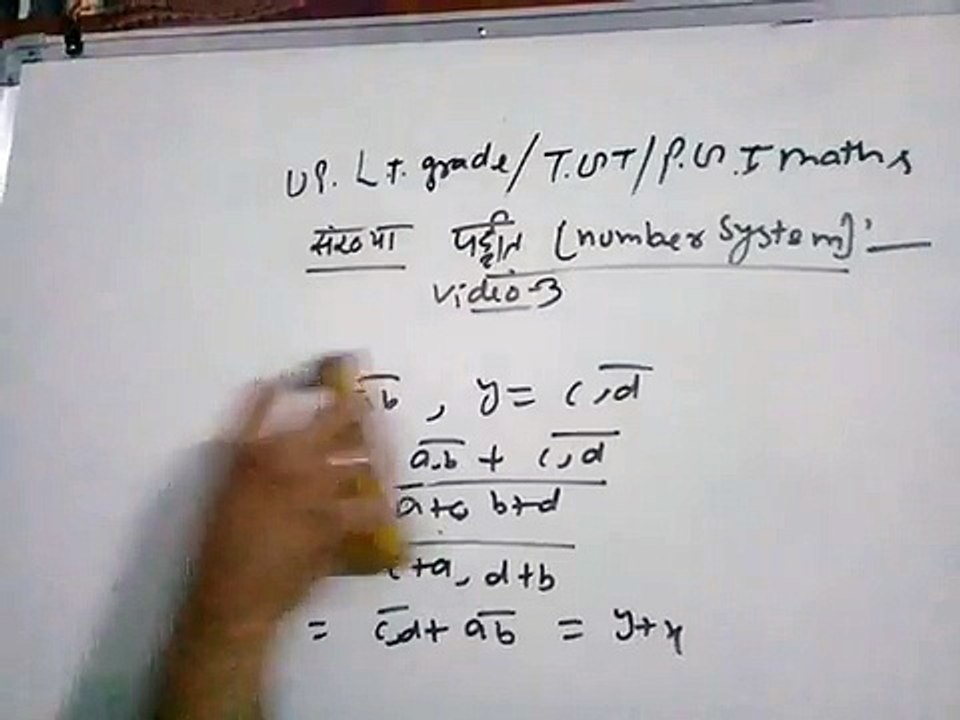 UP. L.T. grade/T.G.T/P.G.T maths
संख्या पद्धति [number system]:—
video-3
b , y = c,d
a,b + c,d
a+c b+d
c+a, d+b
= c,d + a b = y+x